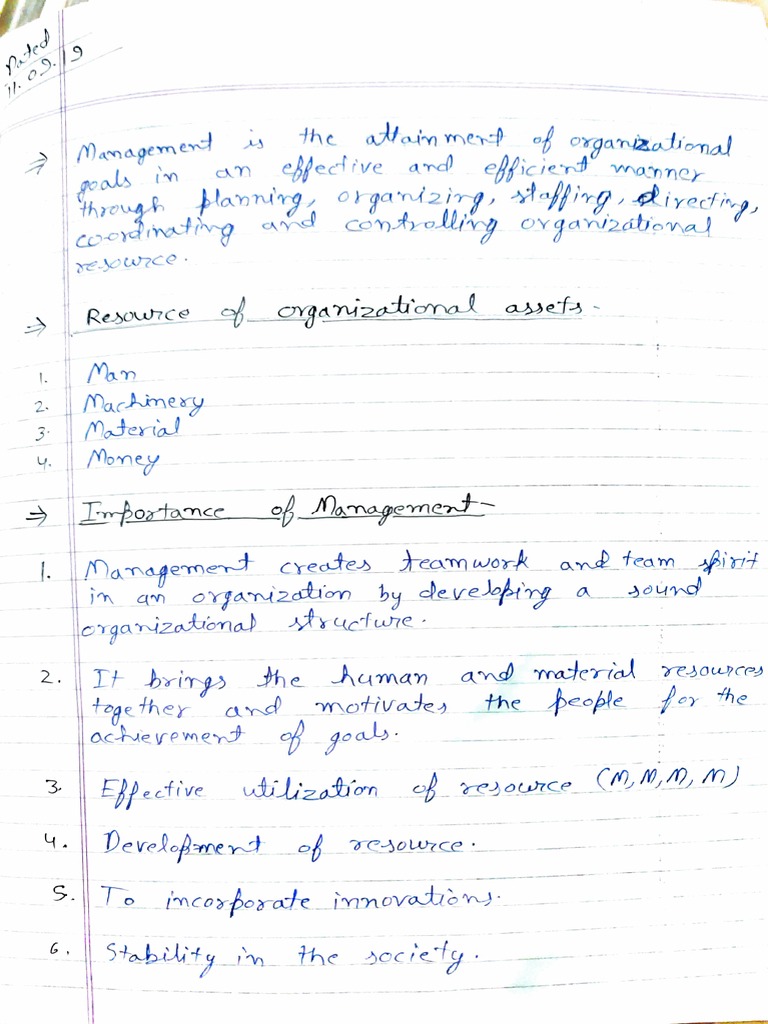 Dated
11.09.19
⇒ Management is the attainment of organizational
goals in an effective and efficient manner
through planning, organizing, staffing, directing,
coordinating and controlling organizational
resource.
⇒ Resource of organizational assets -
1. Man
2. Machinery
3. Material
4. Money
⇒ Importance of Management -
1. Management creates teamwork and team spirit
in an organization by developing a sound
organizational structure.
2. It brings the human and material resources
together and motivates the people for the
achievement of goals.
3. Effective utilization of resource (M, M, M, M)
4. Development of resource.
5. To incorporate innovations.
6. Stability in the society.